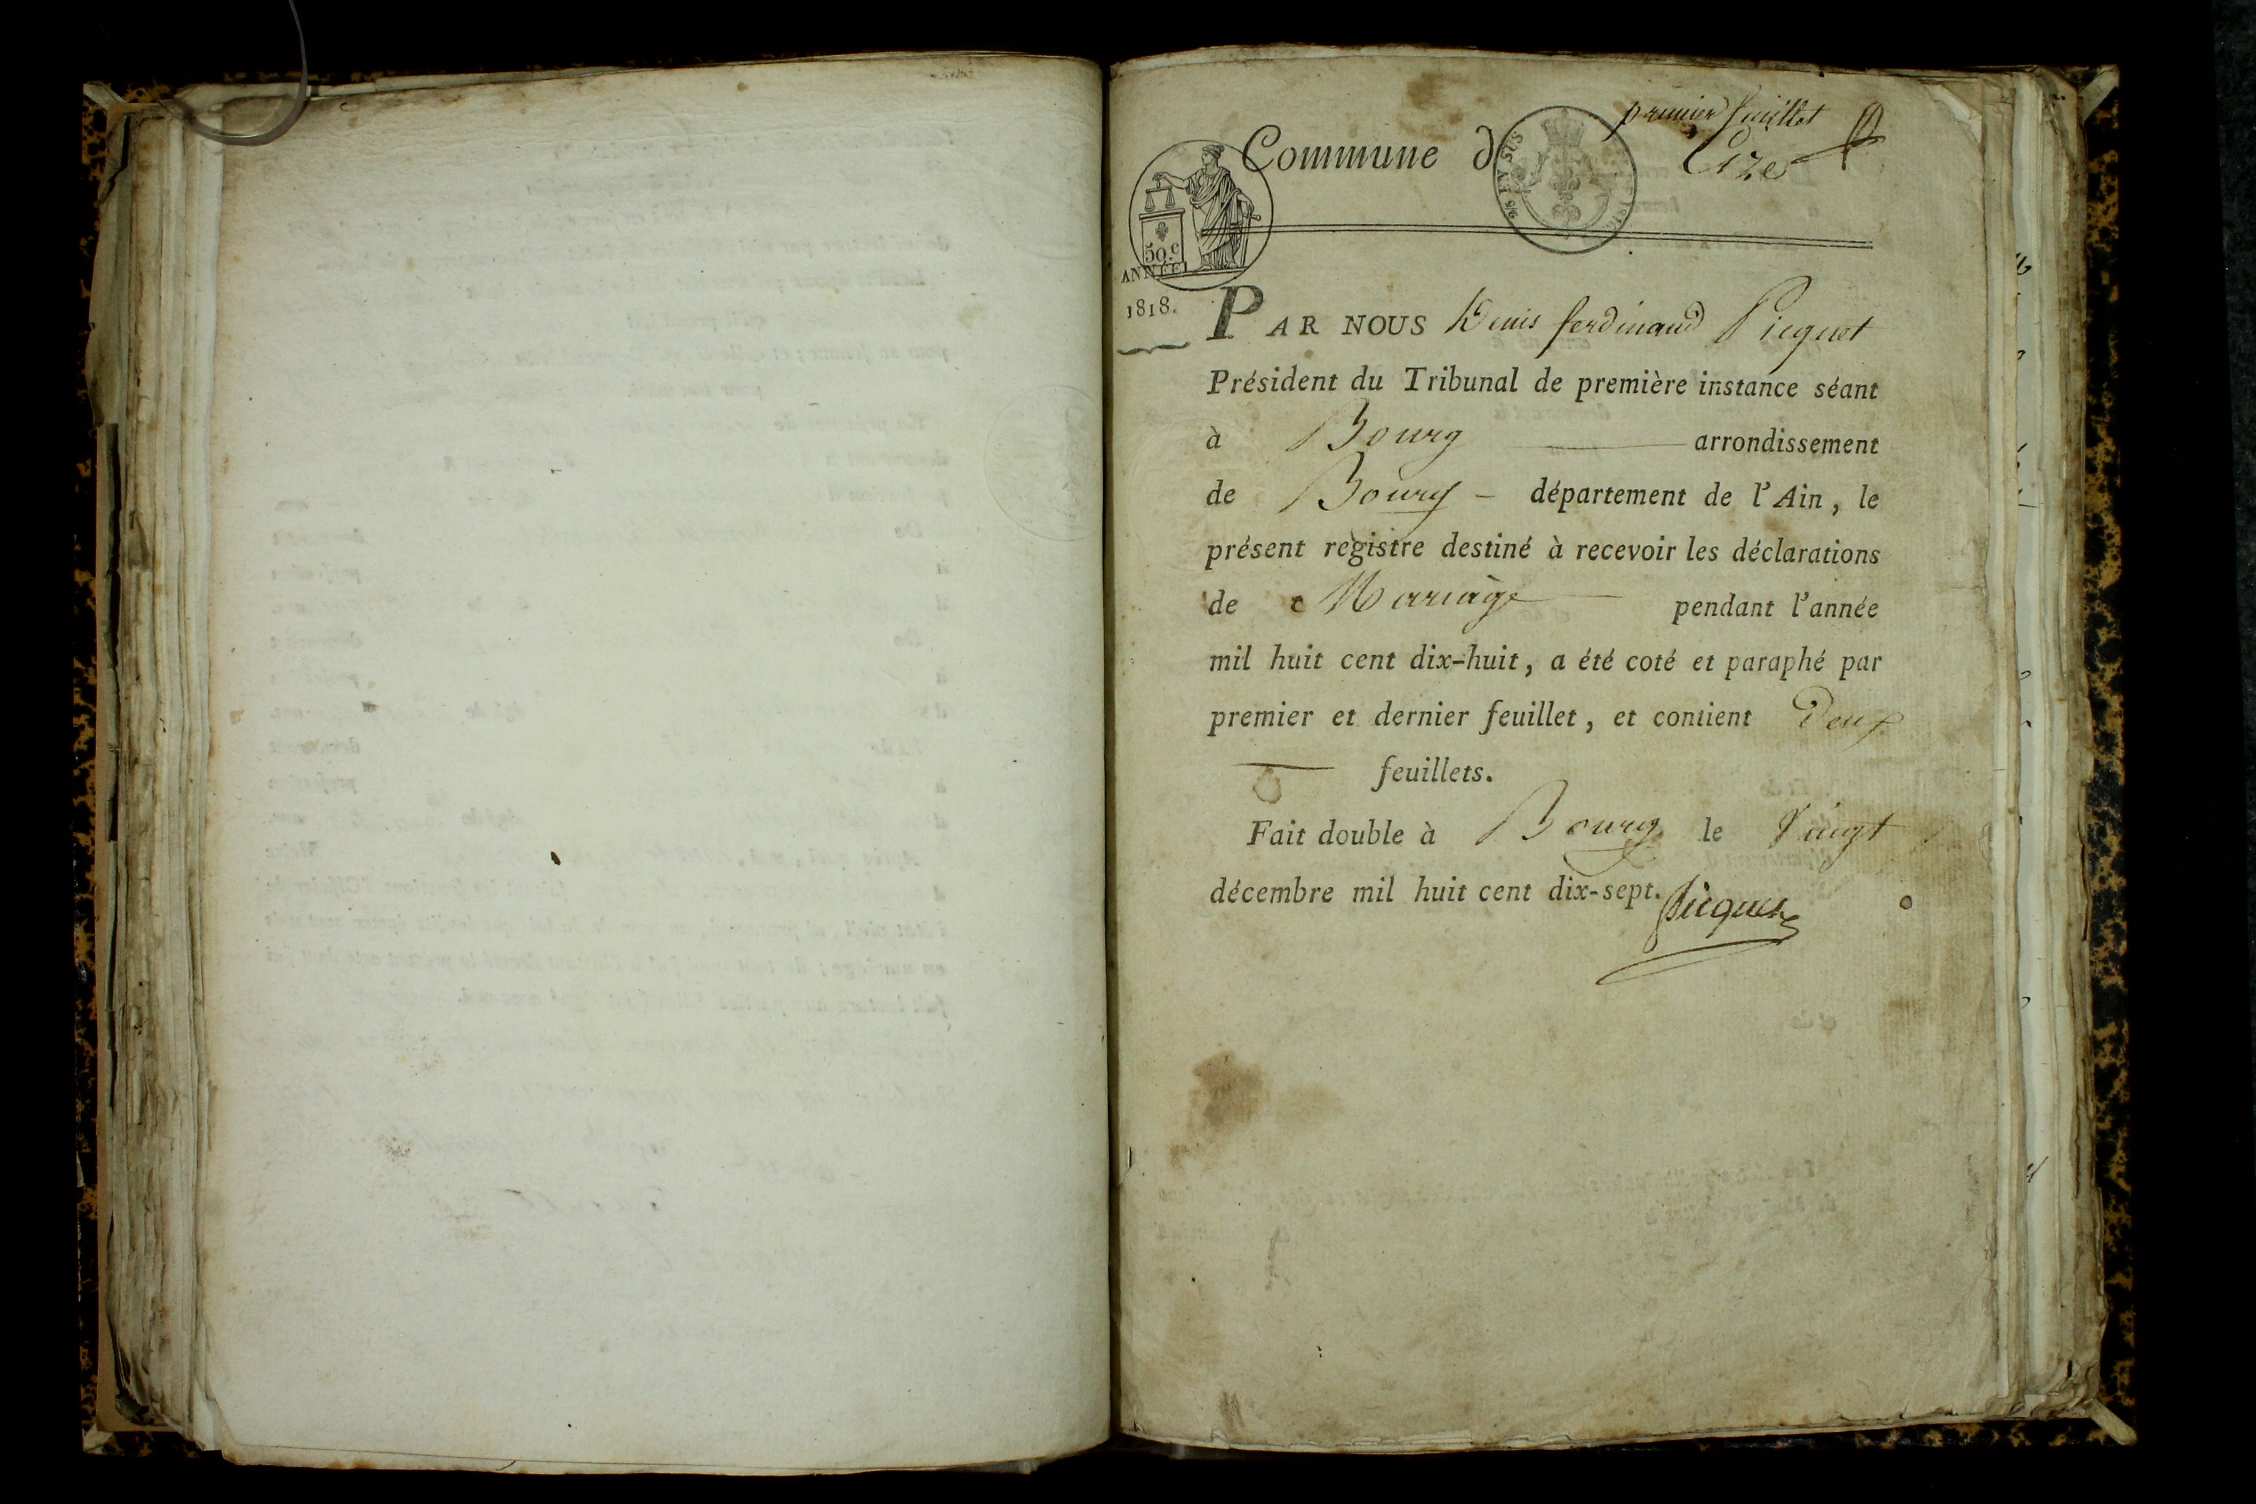 premier feuillet
Commune de Cize
EN SUS
50.c
ANNÉE
1818.
PAR NOUS Denis ferdinand Picquet
Président du Tribunal de première instance séant
à Bourg arrondissement
de Bourg - département de l'Ain, le
présent registre destiné à recevoir les déclarations
de Mariage pendant l'année
mil huit cent dix-huit, a été coté et paraphé par
premier et dernier feuillet, et contient Deux
feuillets.
Fait double à Bourg le Vingt
décembre mil huit cent dix-sept.
Picquet